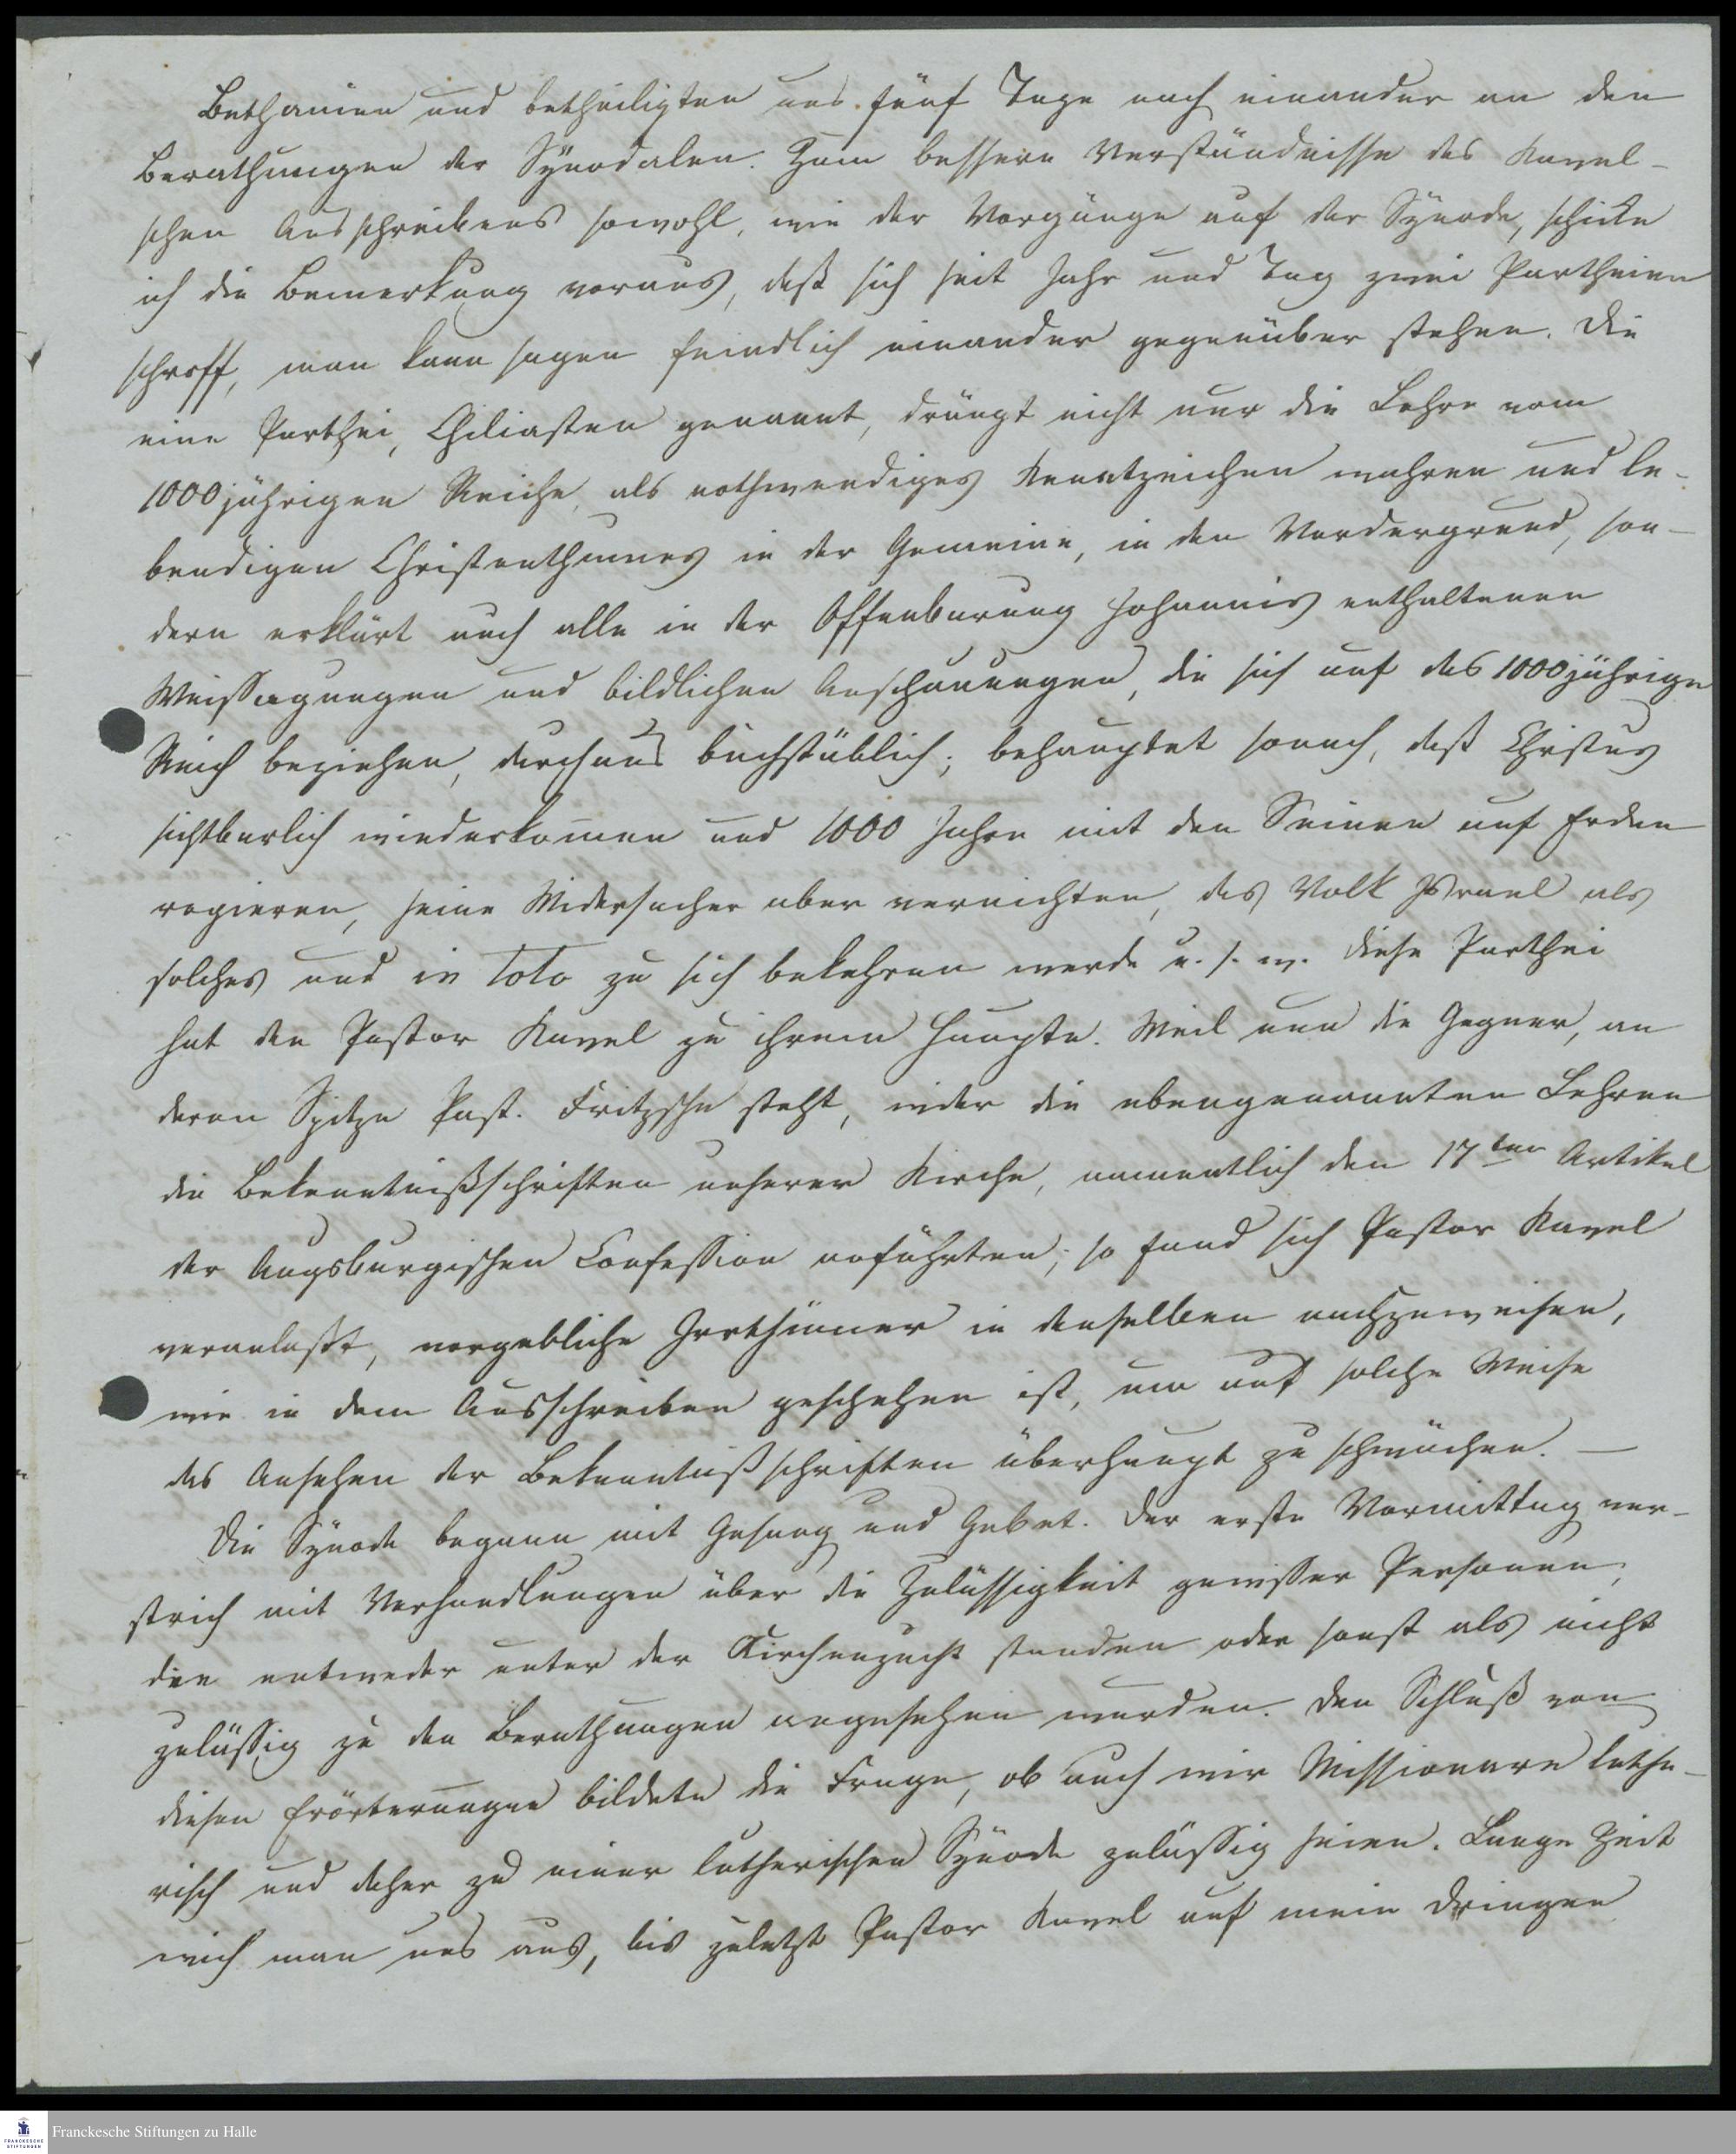 Bethanien und betheiligten uns fünf Tage nach einander an den
Berathungen der Synodalen. Zum bessern Verständnisse des Kavel-
schen Ausschreibens sowohl, wie der Vorgänge auf der Synode, schicke
ich die Bemerkung voraus, daß sich seit Jahr und Tag zwei Partheien
schroff, man kann sagen feindlich einander gegenüber stehen. Die
eine Parthei, Chiliasten genannt, drängt nicht nur die Lehre vom
1000jährigen Reiche, als nothwendiges Kennzeichen wahren und le-
bendigen Christenthumes in der Gemeine, in den Vordergrund, son-
dern erklärt auch alle in der Offenbarung Johannis enthaltenen
Weissagungen und bildlichen Anschauungen, die sich auf das 1000jährige
Reich beziehen, durchaus buchstäblich; behauptet sonach, daß Christus
sichtbarlich wiederkomen und 1000 Jahre mit den Seinen auf Erden
regieren, seine Widersacher aber vernichten, das Volk Israel als
solches und in Toto zu sich bekehren werde u. s. w. Diese Parthei
hat den Pastor Kavel zu ihrem Haupte. Weil nun die Gegner, an
deren Spitze Past. Fritzsche steht, wider die ebengenannten Lehren
die Bekenntnißschriften unserer Kirche, namentlich den 17ten Artikel
der Augsburgischen Confession anführten; so fand sich Pastor Kavel
veranlaßt, vorgebliche Irrthümer in denselben nachzuweisen,
wie in dem Ausschreiben geschehen ist, um auf solche Weise
das Ansehen der Bekenntnißschriften überhaupt zu schwächen. —
Die Synode begann mit Gesang und Gebet. Der erste Vormittag ver-
strich mit Verhandlungen über die Zulässigkeit gewisser Personen,
die entweder unter der Kirchenzucht standen oder sonst als nicht
zulässig zu den Berathungen angesehen wurden. Den Schluß von
diesen Erörterungen bildete die Frage, ob auch wir Missionare luthe-
risch und daher zu einer lutherischen Synode zulässig seien. Lange Zeit
wich man uns aus, bis zuletzt Pastor Kavel auf mein Dringen
Franckesche Stiftungen zu Halle